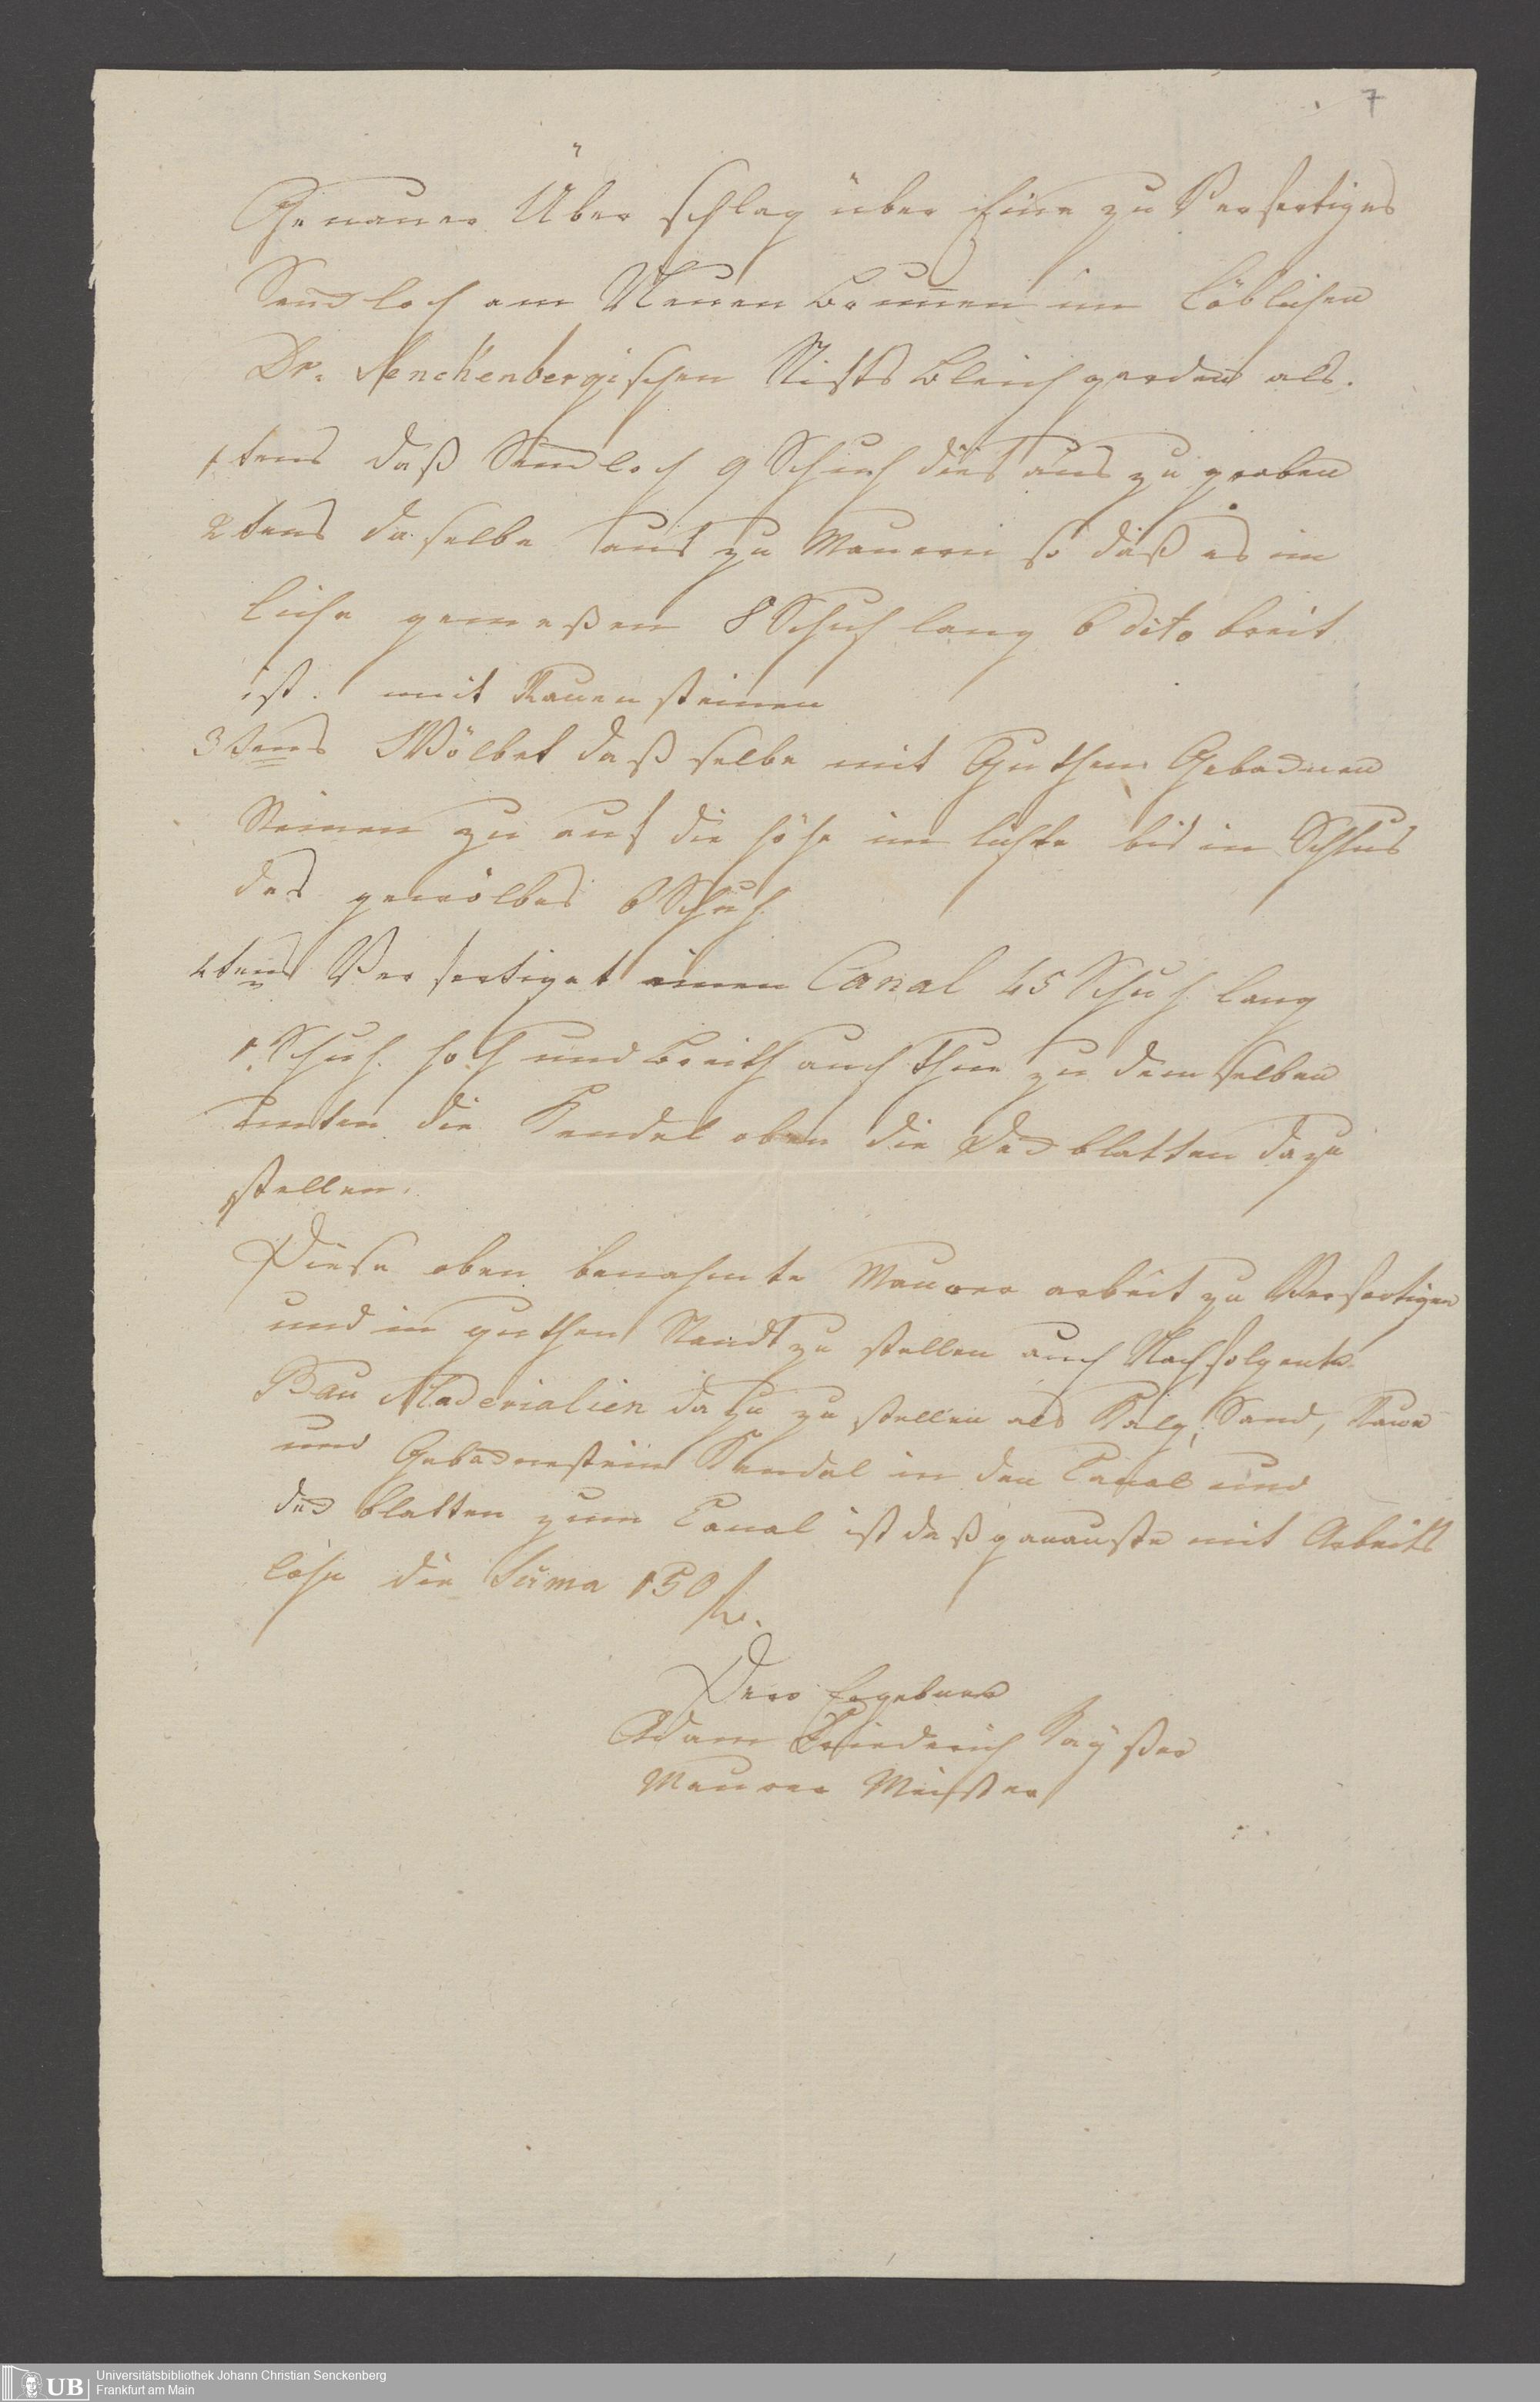 7
Genauer Über schlag über Eine zu Verfertiges
Senckloch am Neuen Brunnen im Löblichen
Dr. Senckenbergischen Stifts Bleich garden als.
1tens daß Senckloch 9 Schuh dief aus zu graben
2tens daselbe aus zu Mauern so daß es im
liche gemeßen 8 Schuh lang 6 dito breit
ist. mit Rauen steinen
3tens Wölbet daß selbe mit Guthen Gebacknen
Steinen zu auf die höhe im lichte bis in Schlus
des gewölbes 6 Schuh.
4tens Verfertiget einen Canal 45 Schuh lang
1 Schuh. hoch und breith auch Thue zu dem selben
unten die Kendel oben die Deckblatten dazu
stellen.
Diese oben benahmte Maurer arbeit zu Verfertigen
und in guthen Standt zu stellen auch Nachfolgente
Bau Maderialien dazu zu stellen als Kalg, Sand, Raue
und Gebacknestein Kendel in den Canal und
deckblatten zum Canal ist daß genauste mit Arbeits
lohn die Suma 150 fl.
Dero Ergebner
Adam Friederich Kayßer
Maurer Meister
UB
Universitätsbibliothek Johann Christian Senckenberg
Frankfurt am Main